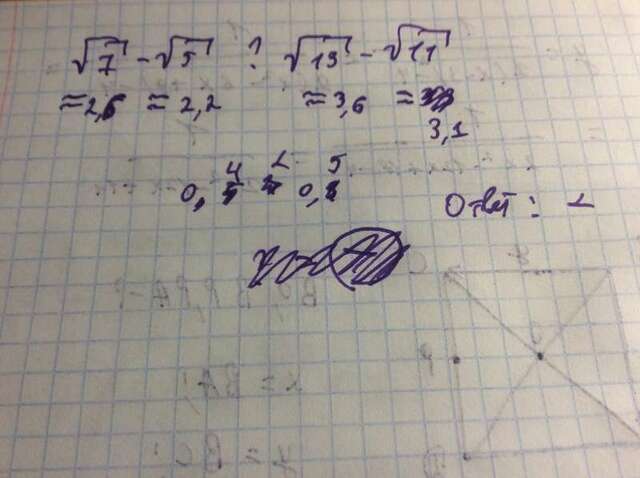 √7 - √5 ? √13 - √11
≈2,6 ≈ 2,2 ≈3,6 ≈
3,1
0,4 < 0,5
Ответ: <